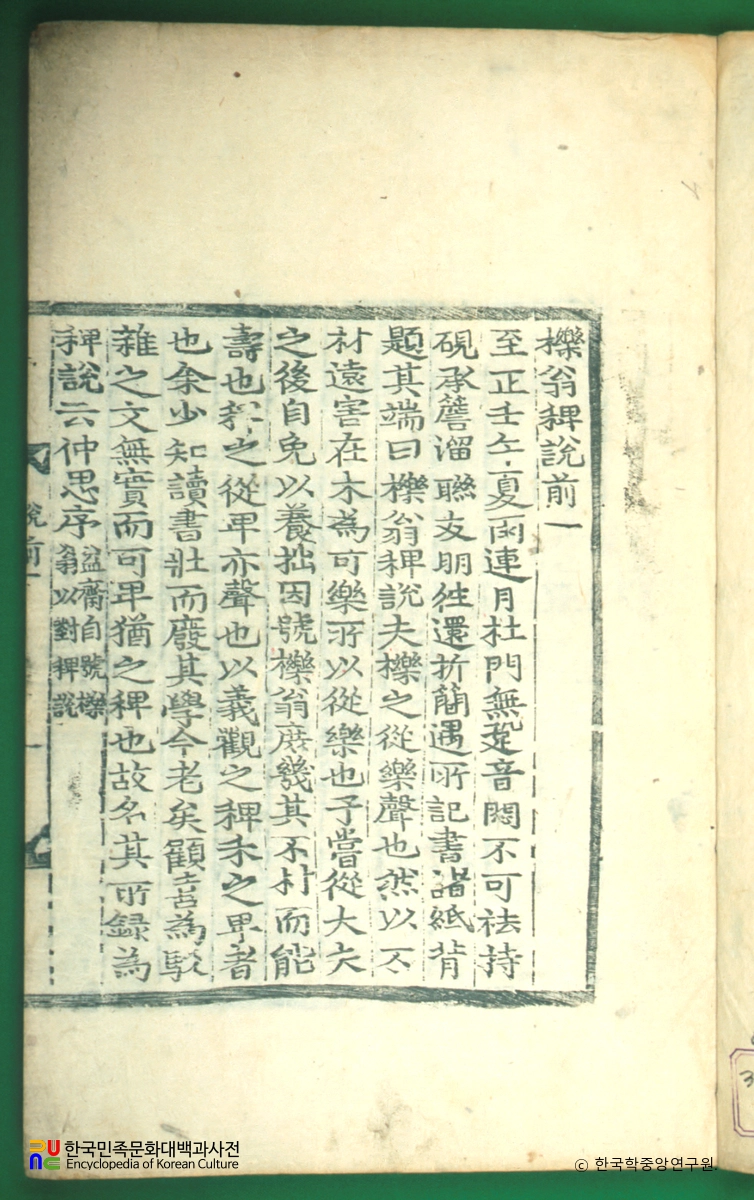 櫟翁稗說前一
至正壬午夏雨連月杜門無跫音悶不可祛持
硯承簷溜聯友朋徃還折簡遇所記書諸紙背
題其端曰櫟翁稗說夫櫟之從樂聲也然以不
材遠害在木為可樂所以從樂也予嘗從大夫
之後自免以養拙因號櫟翁庶幾其不材而能
壽也稗之從卑亦聲也以義觀之稗禾之卑者
也余少知讀書壯而廢其學今老矣顧喜為駁
雜之文無實而可卑猶之稗也故名其所錄為
稗說云仲思序 益齋自號櫟
翁以對稗說
說前一
한국민족문화대백과사전
Encyclopedia of Korean Culture
© 한국학중앙연구원.
3